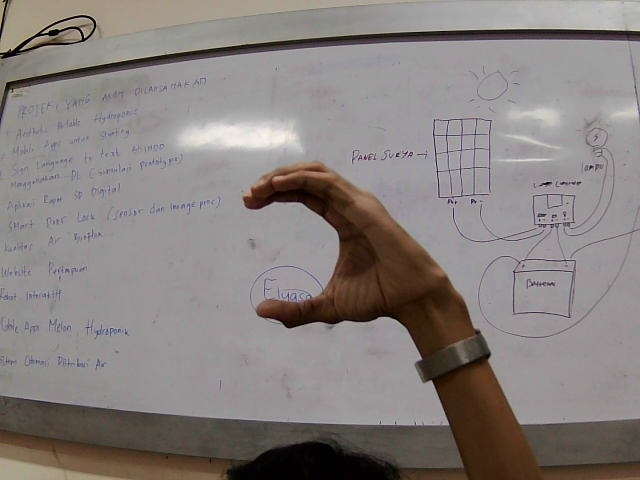 PROJEK YANG AKAN DILAKSANAKAN
Aesthetic Portable Hydroponic
Mobile Apps untuk Stunting
Sign Language to text BISINDO
Menggunakan DL (simulasi prototype)
Aplikasi Rapor SD Digital
Smart Door Lock (sensor dan image proc)
Kualitas Air Bioflok
Website
Robot Interaktif
Mobile Apps Melon Hydroponik
Sistem Otomasi Distribusi Air
Elyasa
PANEL SURYA →
Lampu
Baterai